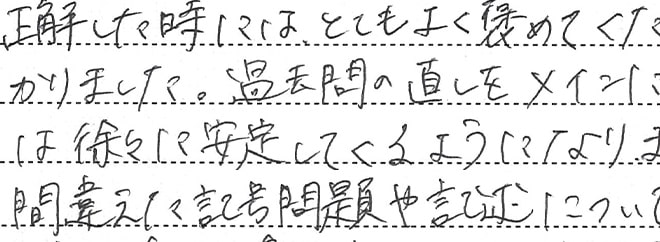 正解した時には、とてもよく褒めてくた
かりました。過去問の直しをメインに
は徐々に安定してくるようになりま
間違えた記号問題や記述について